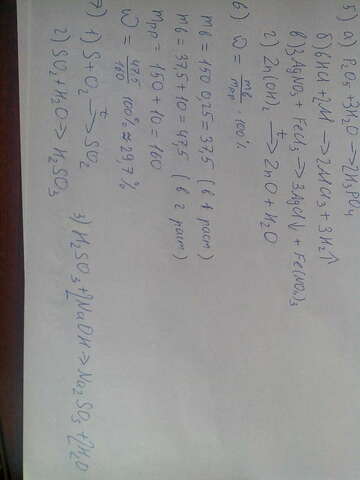 5) а) P2O5 + 3H2O → 2H3PO4
б) 6HCl + 2Al → 2AlCl3 + 3H2↑
в) 3AgNO3 + FeCl3 → 3AgCl↓ + Fe(NO3)3
г) Zn(OH)2 t→ ZnO + H2O
6) ω = mв/mрр · 100%
mв = 150·0,25 = 37,5 (в 1 раст)
mв = 37,5 + 10 = 47,5 (в 2 раст)
mрр = 150 + 10 = 160
ω = 47,5/160 · 100% ≈ 29,7%
7) 1) S + O2 t→ SO2
2) SO2 + H2O → H2SO3
3) H2SO3 + 2NaOH → Na2SO3 + 2H2O